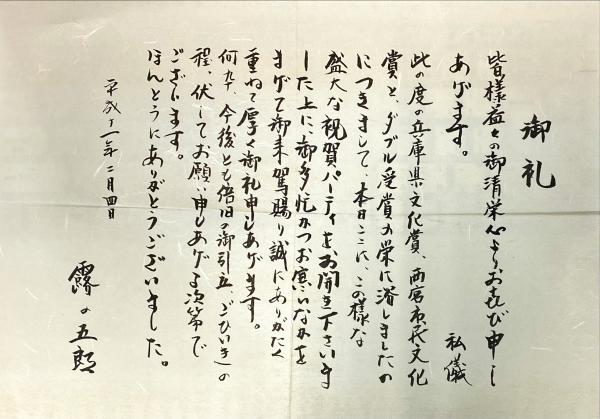 御礼
皆様益々の御清栄心よりお喜び申し
あげます。
私儀
此の度の兵庫県文化賞、西宮市民文化
賞と、ダブル受賞の栄に浴しましたの
につきまして、本日ここに、この様な
盛大な祝賀パーティをお開き下さいま
した上に、御多忙かつお寒いなかを
まげて御来駕賜り誠にありがたく
重ねて厚く御礼申しあげます。
何卒、今後とも倍旧の御引立、ごひいきの
程、伏してお願い申しあげる次第で
ございます。
ほんとうにありがとうございました。
平成十一年二月四日
露の五郎